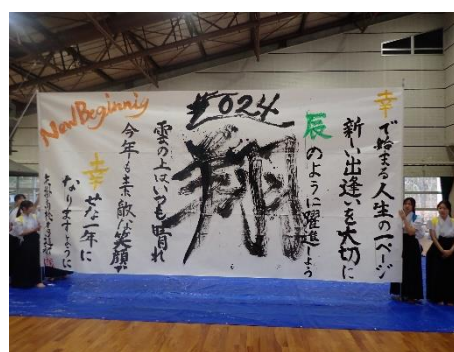 幸で始まる人生の一ページ
新しい出逢いを大切に
辰のように躍進しよう
2024
翔
雲の上はいつも晴れ
今年も素敵な笑顔で
幸せな一年に
なりますように
New Beginnig